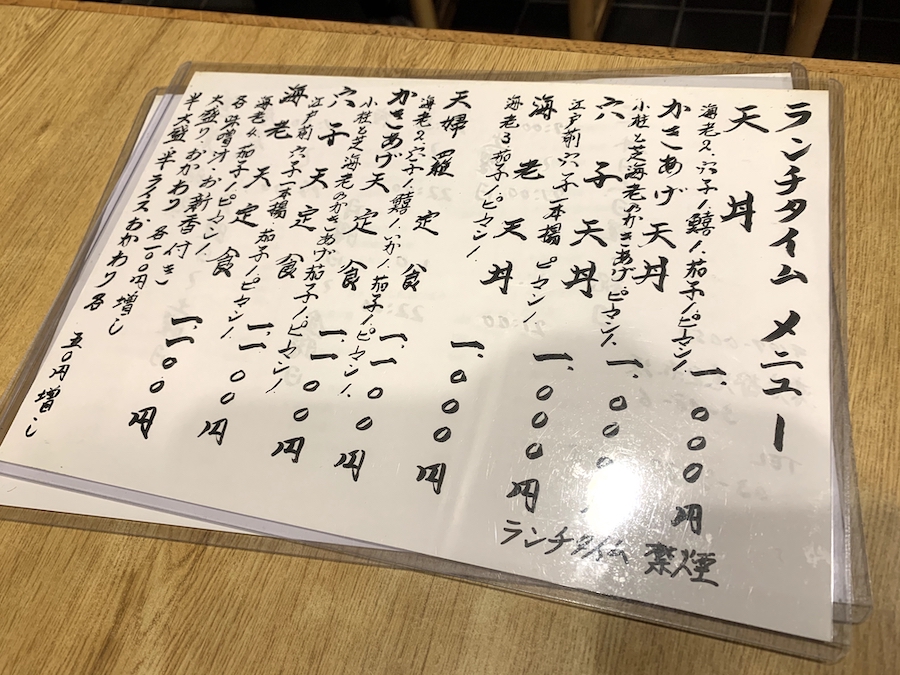 ランチタイム メニュー
天丼 一、〇〇〇円
海老2.穴子1.鱚1.茄子1.ピーマン1.
かきあげ天丼 一、〇〇
小柱と芝海老のかきあげ.ピーマン1.
穴子天丼 一、〇〇〇円
江戸前穴子一本揚 ピーマン1.
海老天丼 一、〇〇〇円
海老3茄子1.ピーマン1.
天婦羅定食 一、一〇〇円
海老2.穴子1.鱚1.いか1.茄子1.ピーマン1.
かきあげ天定食 一、一〇〇円
小柱と芝海老のかきあげ.茄子1.ピーマン1.
穴子天定食 一、一〇〇円
江戸前穴子一本揚 茄子1.ピーマン1.
海老天定食 一、一〇〇円
海老4.茄子1.ピーマン1.
各味噌汁.お新香付き
大盛り.おかわり各一〇〇円増し
半大盛.半ライスおかわり各 五〇円増し
ランチタイム 禁煙